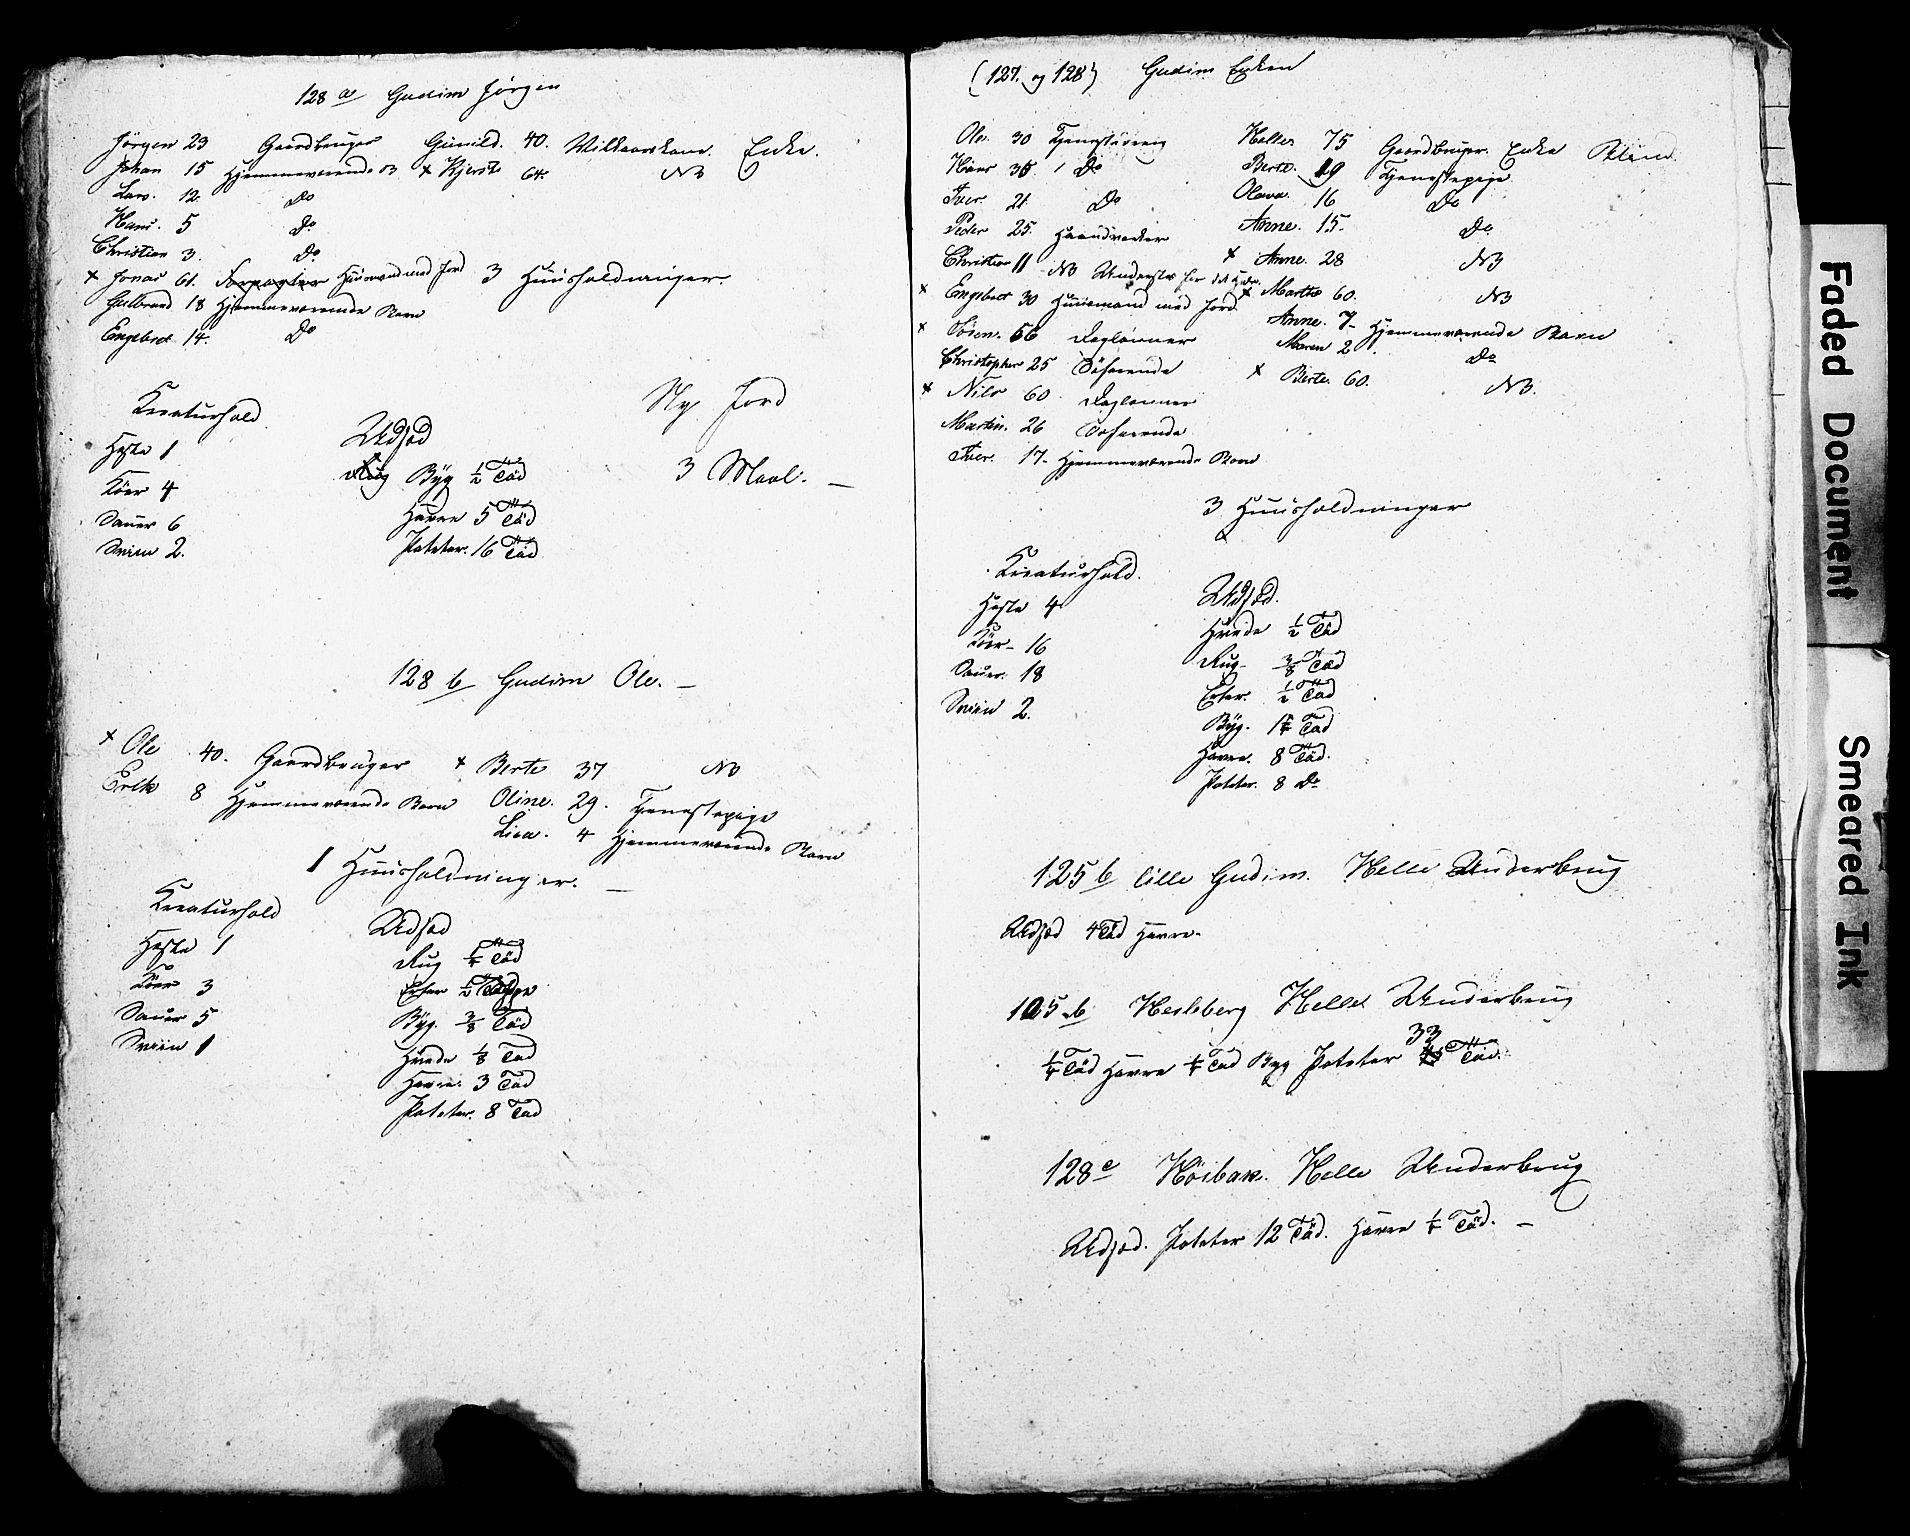 128 a Gudim Jørgen
Jørgen 23 Gaardbruger Gunild. 40. Vilkaarskone. Enke.
Johan 15 Hjemmeværende B × Kjersti 64. NB
Lars. 12. Do
Hans. 5 Do
Christian 3. Do
× Jonas 61. Huusmand med Jord 3 Huusholdninger.
Gulbrand 18 Hjemmeværende Barn
Engebret 14. Do
Kreaturhold
Heste 1
Köer 4
Sauer 6
Sviin 2.
Udsæd
Byg ½ Tød
Havre 5 Tød
Poteter. 16 Tød
Ny Jord
3 Maal. —
128 b Gudim Ole. —
× Ole 40. Gaardbruger × Berte 37 NB
Erik 8 Hjemmeværende Barn Oline. 29. Tjenestepige
Lisa. 4 Hjemmeværende Barn
1 Huusholdninger. —
Kreaturhold
Heste 1
Köer 3
Sauer 5
Sviin 1
Udsæd
Rug ¼ Tød
Erter ½
Byg. 3/8 Tød
Hvede 1/8 Tød
Havre 3 Tød
Poteter. 8 Tød
(127. og 128) Gudim Enken
Ole. 30 Tjenestedreng Helle 75 Gaardbruger. Enke Blind.
Hans 35 1 Do Berte. 19 Tjenestepige
Iver. 21 Do Olava. 16 Do
Peder 25. Haandverker Anne. 15. Do
Christian 11 NB × Anne. 28 NB
× Engebret 30 Huusmand med Jord × Marthe 60. NB
× Sören. 56 Daglønner Anne. 7 Hjemmeværende Barn
Christopher 25 Söfarende Maren 2. Do
× Nils 60 Daglønner × Berte. 60. NB.
Martin. 26 Søfarende
Iver. 17. Hjemmeværende Barn
3 Huusholdninger
Kreaturhold.
Heste 4
Köer 16
Sauer. 18
Sviin 2.
Udsæd.
Hvede ½ Tød
Rug 3/8 Tød
Erter. ½ Tød
Byg. 1¼ Tød
Havre. 8 Tød.
Poteter. 8 Do
125 b lille Gudim. Helle Underbrug
Udsæd 4 Tød Havre.
105 b Hesleberg Helle Underbrug
¼ Tød Havre ¼ Tød Byg Poteter 33 Tød.
128 c Høibak. Helle Underbrug
Udsæd. Poteter 12 Tød. Havre ¼ Tød. —
Faded Document
Smeared Ink